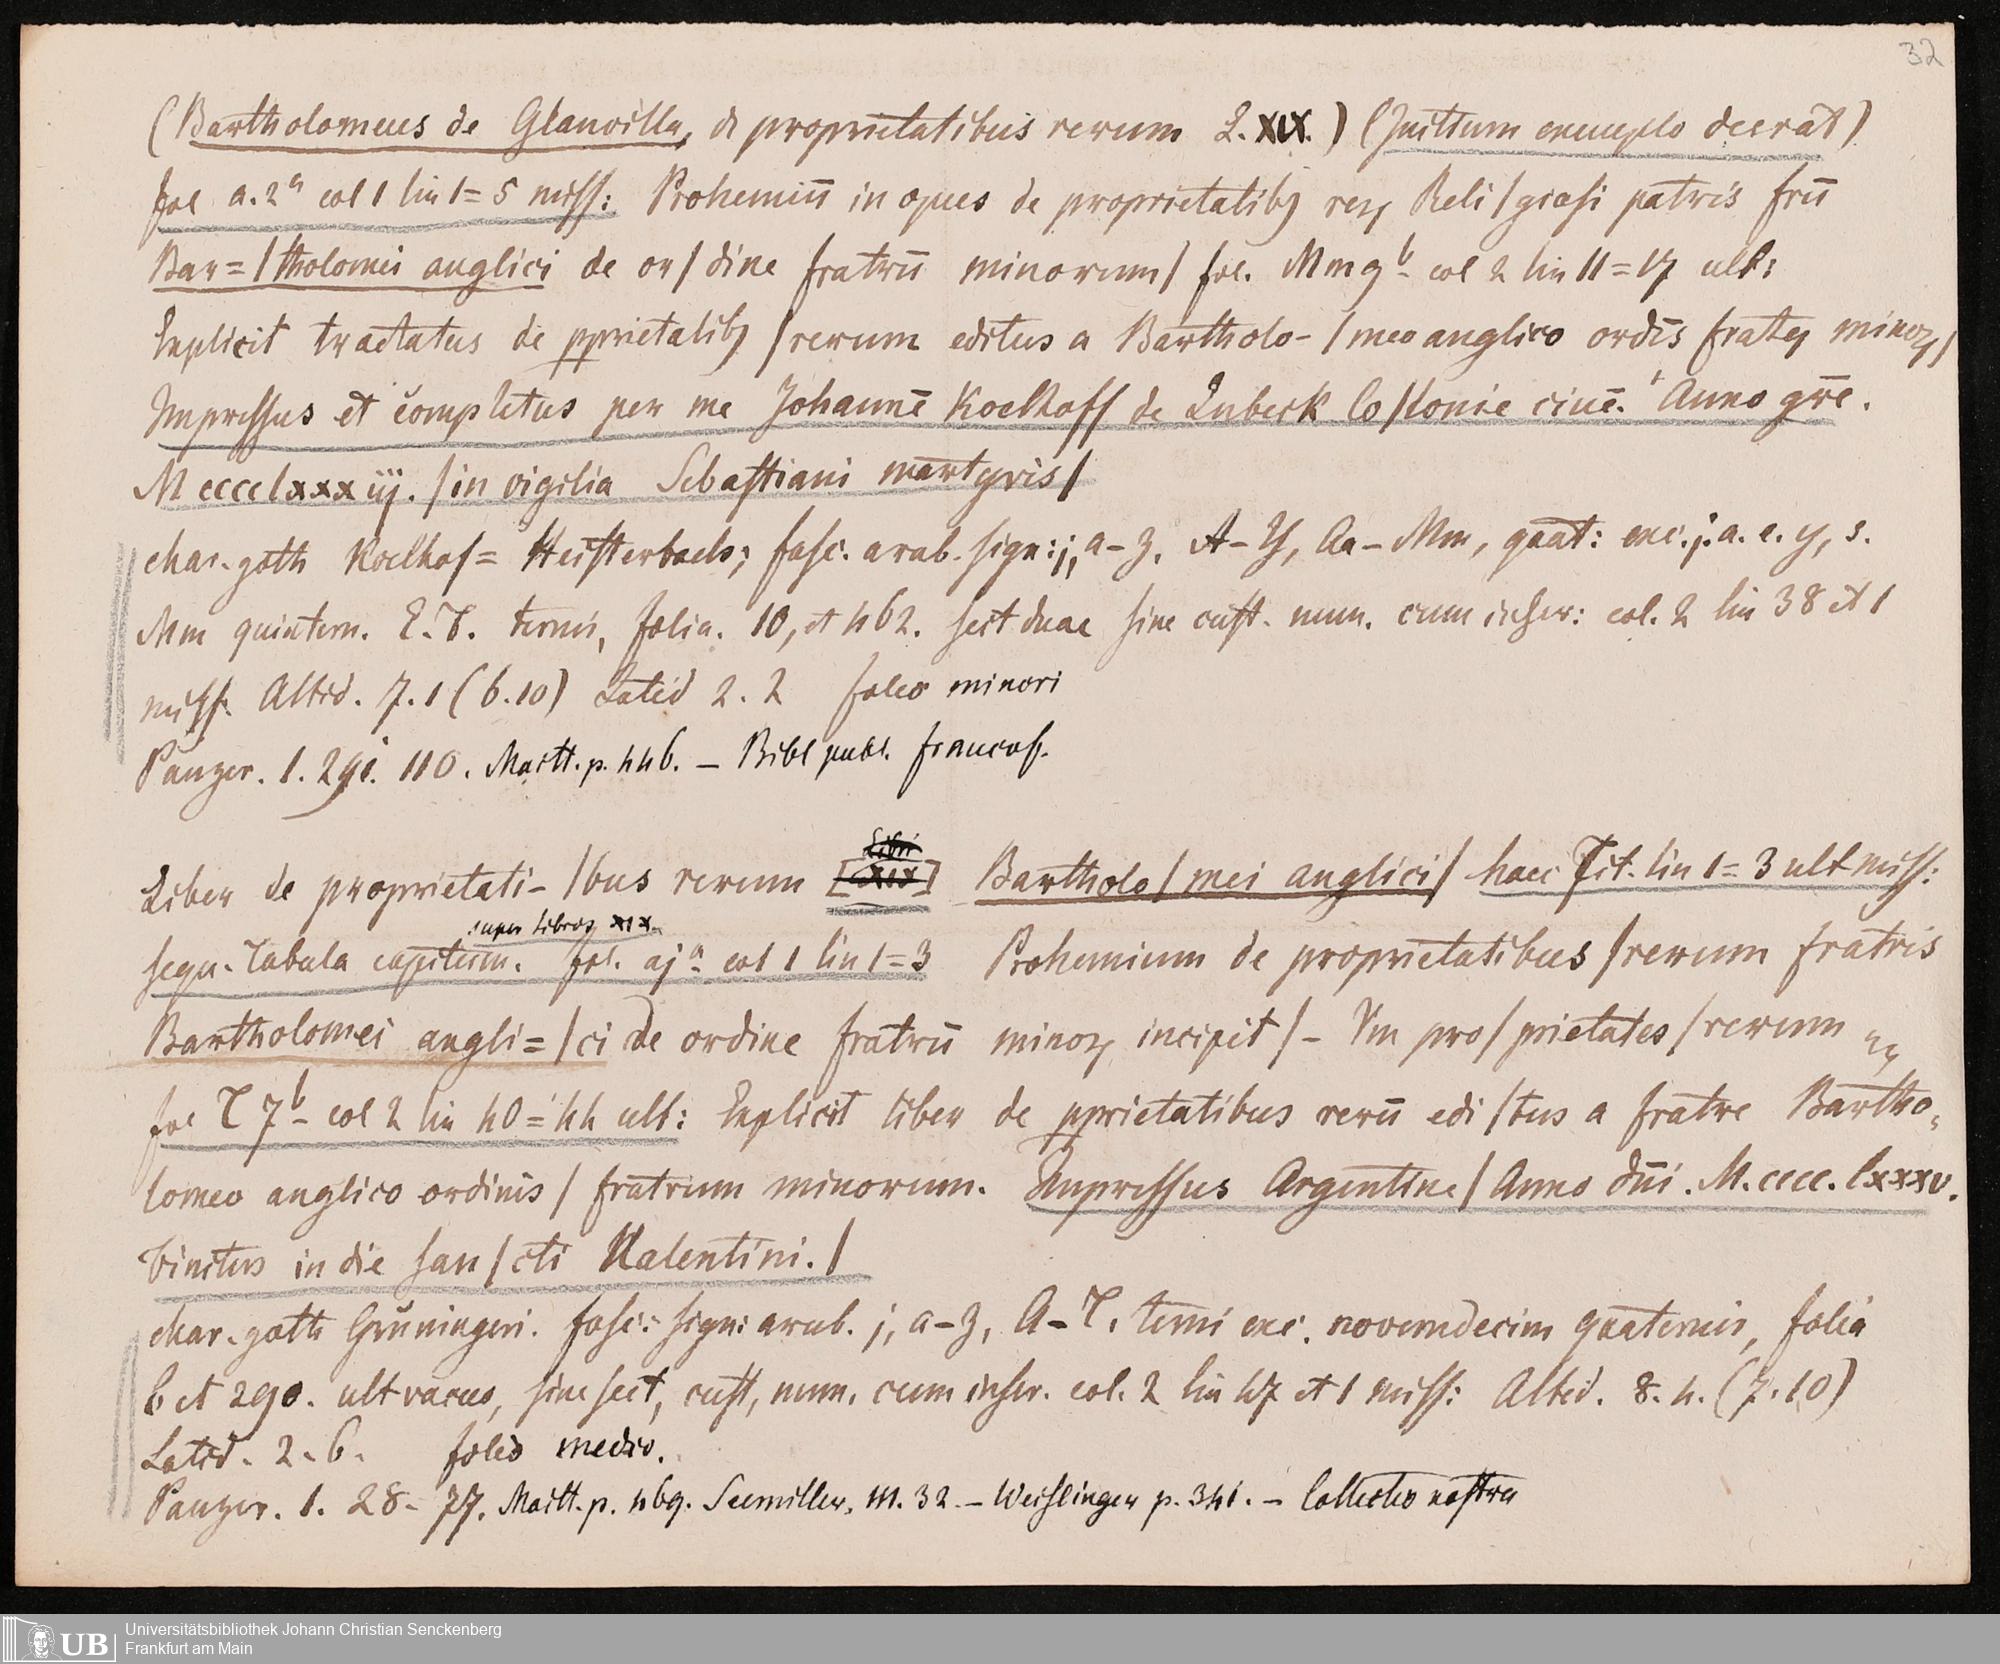 32
(Bartholomeus de Glanvilla, de proprietatibus rerum L. XIX.) (Initium exemplo deerat)
fol a. 2ᵃ col 1 lin 1=5 miss: Prohemiū in opus de proprietatibꝫ reꝝ Reli/giosi patris frū
Bar=/tholomei anglici de or/dine fratrū minorum/ fol. Mm 9ᵇ col 2 lin 11=17 ult:
Explicit tractatus de pprietatibꝫ /rerum editus a Bartholo-/meo anglico ordīs fratrꝝ minoꝝ/
Impressus et completus per me Johannē Koelhoff de Lubeck Co/lonie ciuē. Anno gr̄e.
M cccc lxxx iij. /in vigilia Sebastiani martyris/
char. goth Koelhof= Heisterbach; fasc. arab. sign: j, a-z, A-Y, Aa-Mm, quat: exc. j. a. e. y, s.
Mm quintern. E. T. ternis, folia. 10, et 462. sect duae sine cust. num. cum inscr: col. 2 lin 38 et 1
miss. Altid. 7. 1 (6. 10) Latid 2. 2 folio minori
Panzer. 1. 291. 110. Maitt. p. 446. – Bibl publ. francof.
Liber de proprietati-/bus rerum [Libri XIX] Bartholo/mei anglici/ haec Tit. lin 1=3 ult miss:
super libros XIX.
sequ. Tabula capitum. fol. ajᵃ col 1 lin 1=3 Prohemium de proprietatibus /rerum fratris
Bartholomei angli=/ci de ordine fratrū minoꝝ incipit /- Cum pro/prietates /rerum
fol T 7ᵇ col 2 lin 40=44 ult: Explicit liber de pprietatibus rerū edi/tus a fratre Bartho-
lomeo anglico ordinis / fratrum minorum. Impressus Argentine / Anno dn̄i. M. cccc. lxxxv.
Finitus in die san/cti Valentini./
char. goth Grüningeri. fasc: sign: arab. j, a-z, A-T. terni exc. novemdecim quaternis, folia
6 et 290. ult vacuo, sine sect, cust, num. cum inscr. col. 2 lin 47 et 1 miss: Altid. 8. 4. (7. 10)
Latid. 2. 6. folio medio.
Panzer. 1. 28. 77. Maitt. p. 469. Seemiller. III. 32. – Weislinger p. 341. – Collectio nostra
Universitätsbibliothek Johann Christian Senckenberg
UB Frankfurt am Main